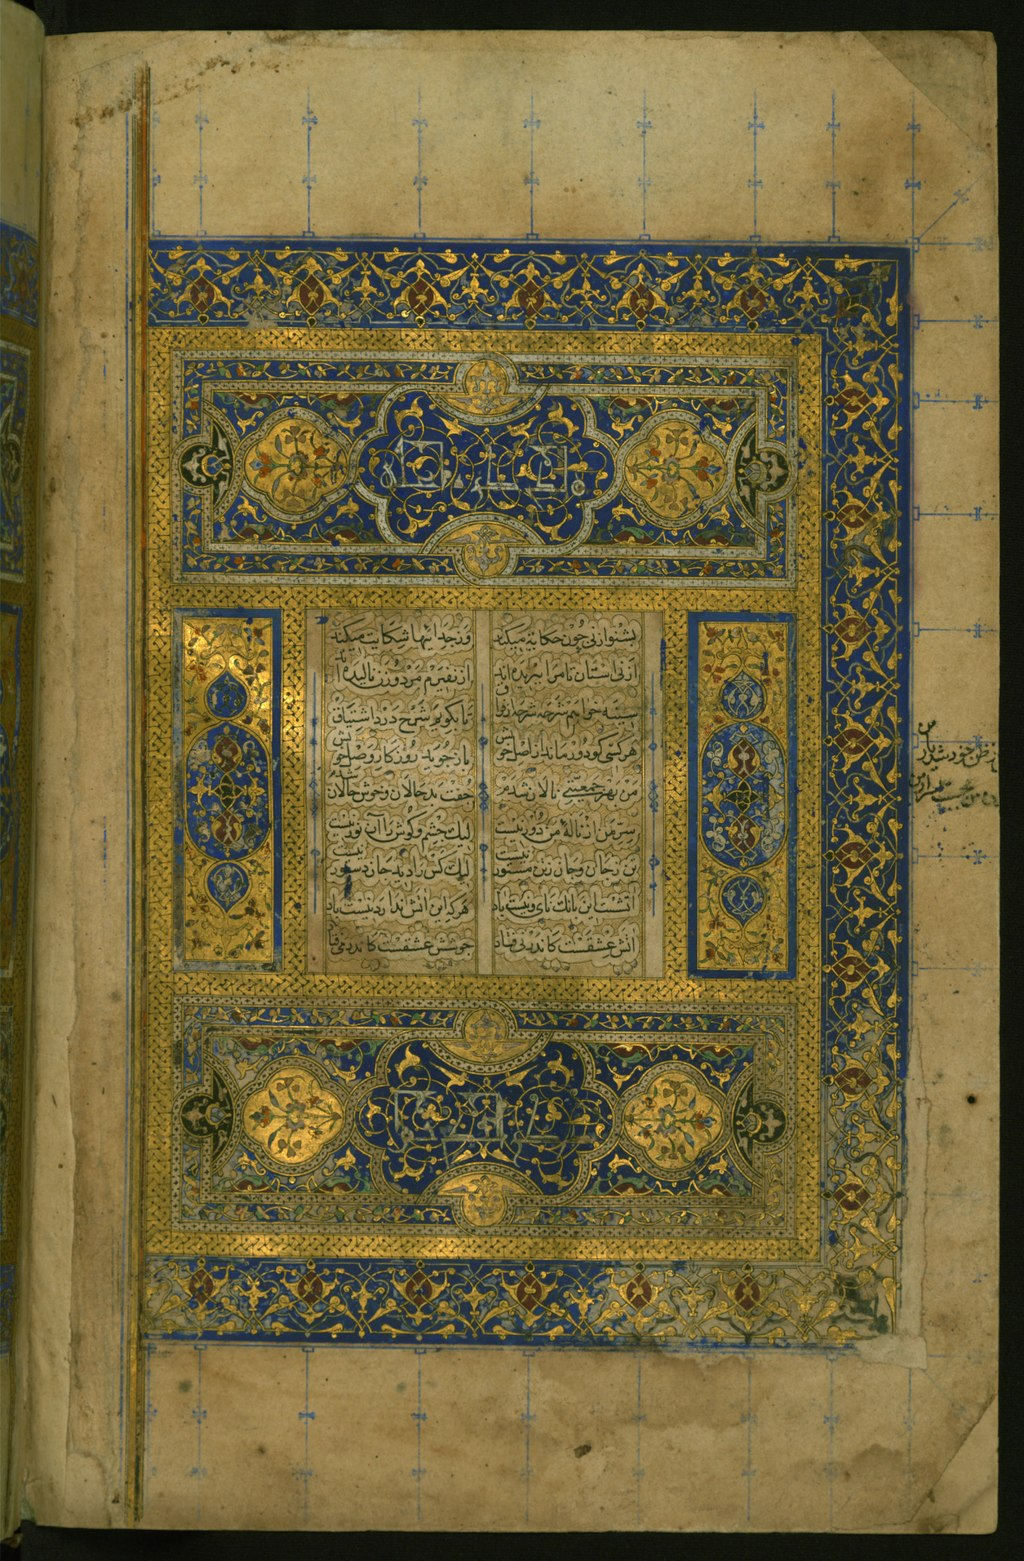 بشنو از نی چون حکایت میکند وز جدائیها شکایت میکند
از نیستان تا مرا ببریده اند از نفیرم مرد و زن نالیده اند
سینه خواهم شرحه شرحه از فراق تا بگویم شرح درد اشتیاق
هر کسی کو دور ماند از اصل خویش باز جوید روزگار وصل خویش
من بهر جمعیتی نالان شدم جفت بدحالان و خوش حالان شدم
سر من از ناله من دور نیست لیک چشم و گوش را آن نور نیست
تن ز جان و جان ز تن مستور نیست لیک کس را دید جان دستور نیست
آتشست این بانگ نای و نیست باد هر که این آتش ندارد نیست باد
آتش عشقست کاندر نی فتاد جوشش عشقست کاندر می فتاد